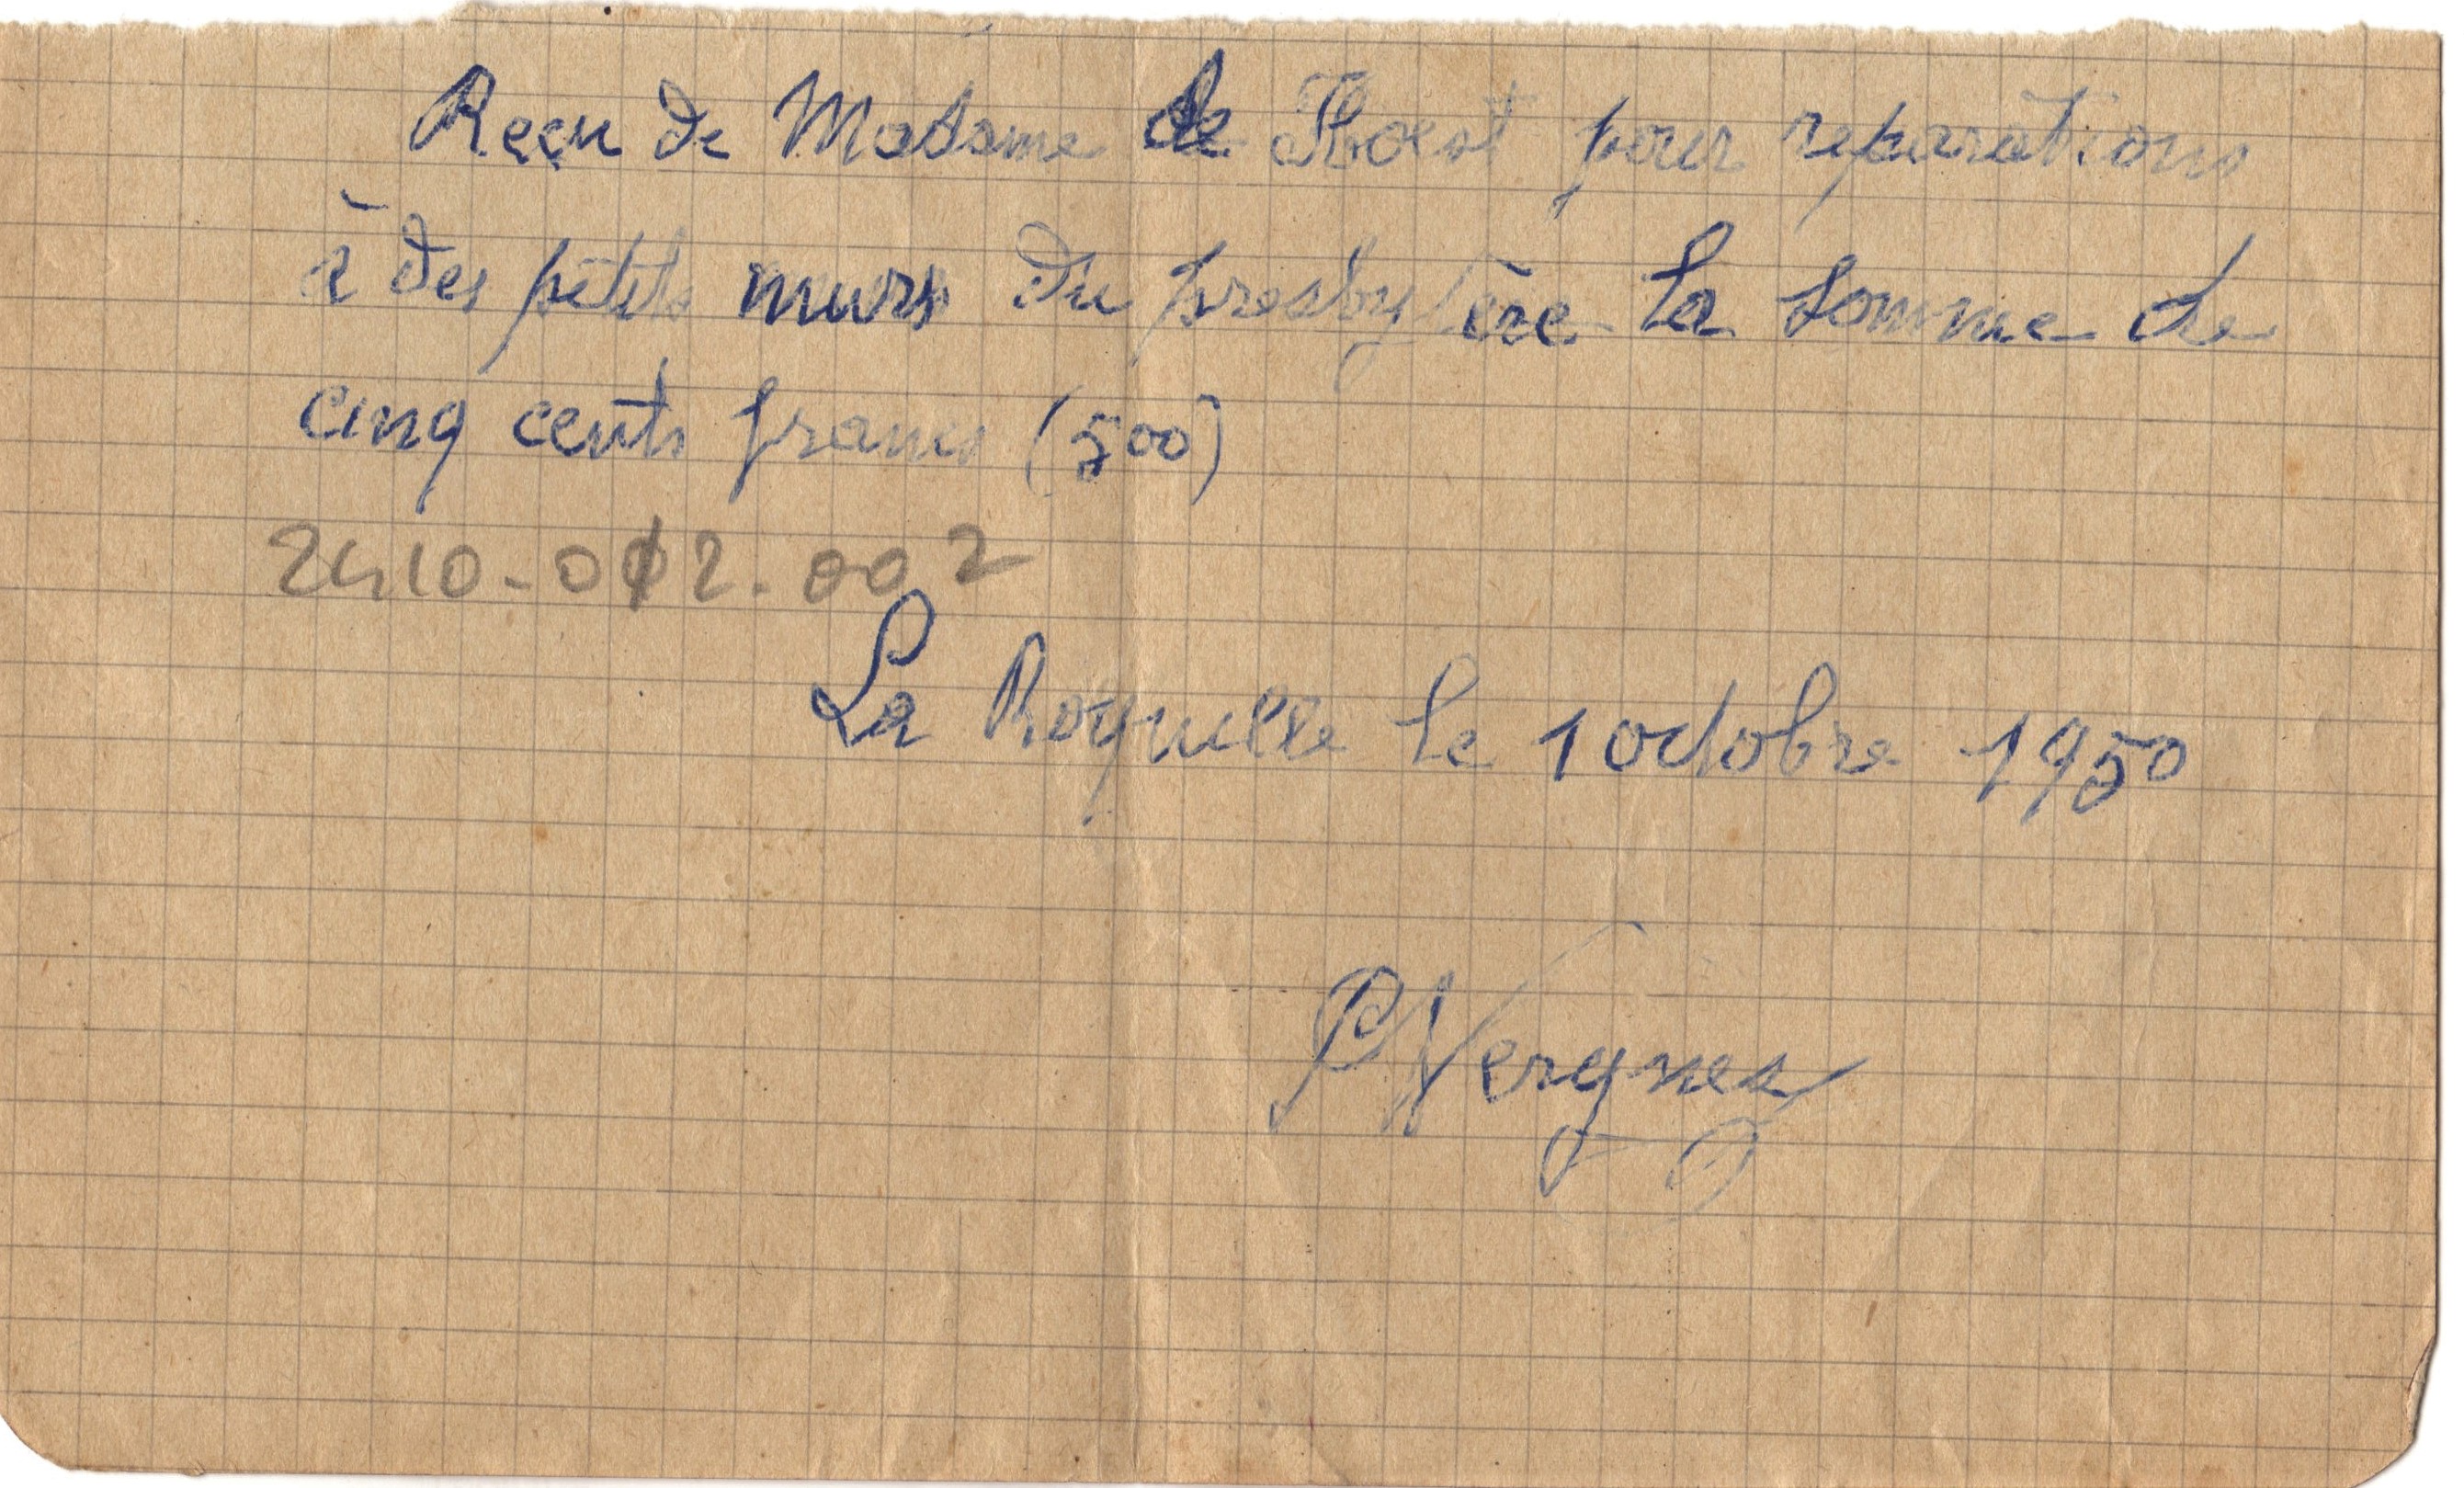 Reçu de Madame de pour reparations
à des petits murs du presbytère la somme de
cinq cents francs (500)
2410-012.002
La Roquille le 1 octobre 1950
P Vergnes